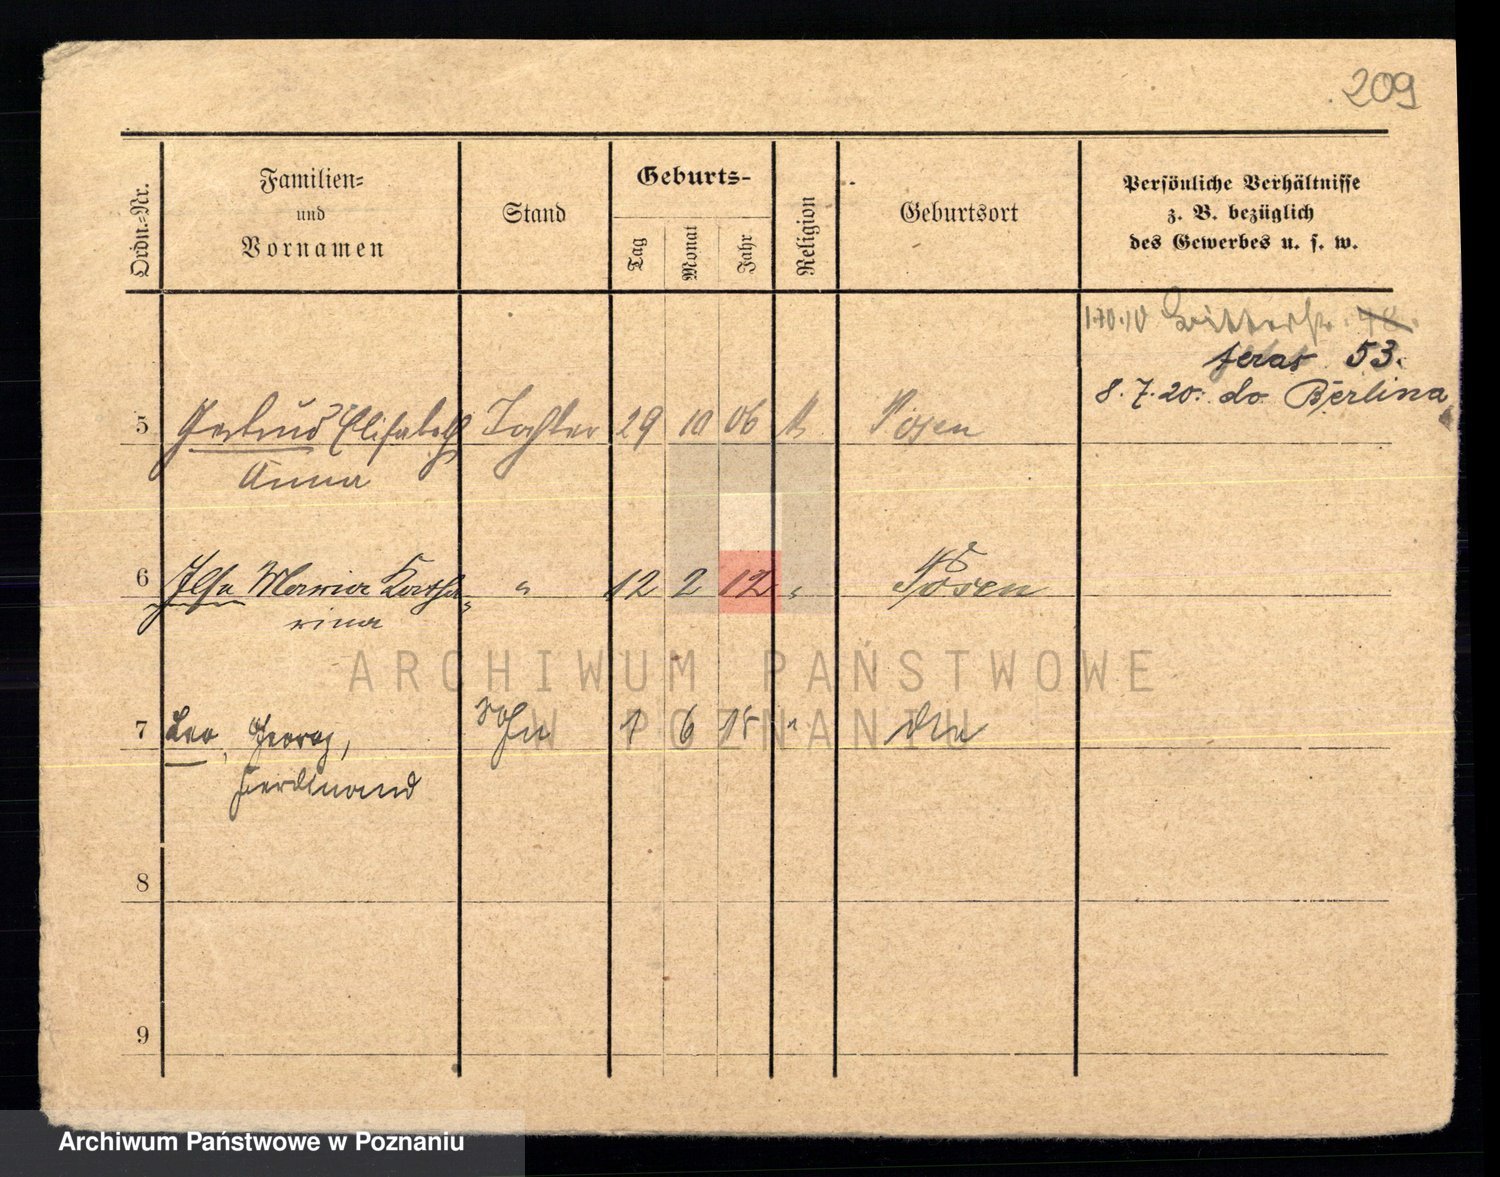 209
Ordn.=Nr.
Familien=
und
Vornamen
Stand
Geburts-
Tag
Monat
Jahr
Religion
Geburtsort
Persönliche Verhältnisse
z. B. bezüglich
des Gewerbes u. s. w.
1.10.10
teras 53.
8.7.20. do Berlina
5 Gertrud Elisabeth Tochter 29 10 06 Posen
Anna
6 Ilse Maria Katha- " 12 2 12 " Posen
rina
7 Leo, Georg, Sohn 1 6 15 " dto
Ferdinand
8
9
ARCHIWUM PAŃSTWOWE
W POZNANIU
Archiwum Państwowe w Poznaniu